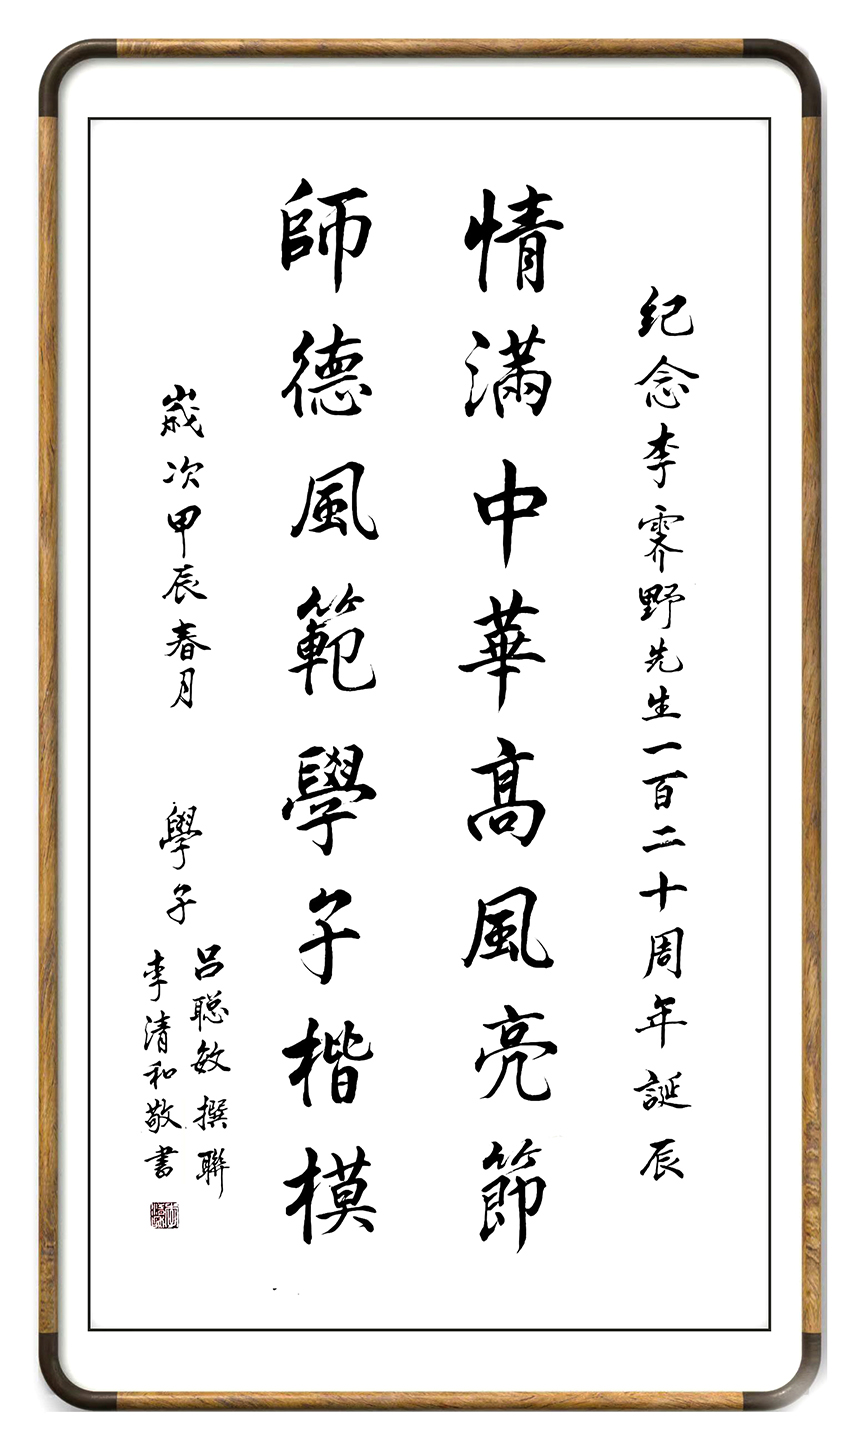 纪念李霁野先生一百二十周年誕辰
情滿中華高風亮節
師德風範學子楷模
歲次甲辰春月
學子
吕聪敏撰聯
李清和敬書